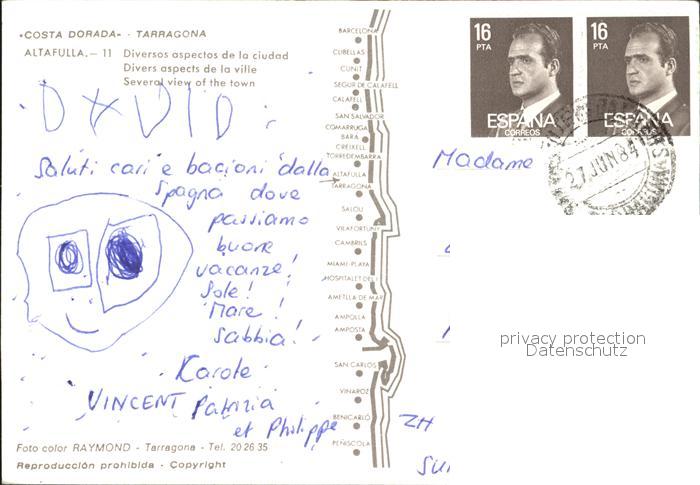 «COSTA DORADA» - TARRAGONA
ALTAFULLA.— 11 Diversos aspectos de la ciudad
Divers aspects de la ville
Several view of the town
DAVID
Saluti cari e bacioni dalla
Spagna dove
passiamo
buone
vacanze!
Sole!
Mare!
Sabbia!
Karole
VINCENT Patrizia
et Philippe
Foto color RAYMOND - Tarragona - Tel. 20 26 35
Reproducción prohibida - Copyright
BARCELONA
CUBELLAS
CUNIT
SEGUR DE CALAFELL
CALAFELL
SAN SALVADOR
COMARRUGA
BARÁ
CREIXELL
TORREDEMBARRA
ALTAFULLA
TARRAGONA
SALOU
VILAFORTUNY
CAMBRILS
MIAMI-PLAYA
HOSPITALET DEL I.
AMETLLA DE MAR
AMPOLLA
AMPOSTA
SAN CARLOS
VINAROZ
BENICARLÓ
PEÑISCOLA
16 PTA
ESPAÑA
CORREOS
16 PTA
ESPAÑA
CORREOS
27 JUN 84
Madame
privacy protection
Datenschutz
ZH
SUI